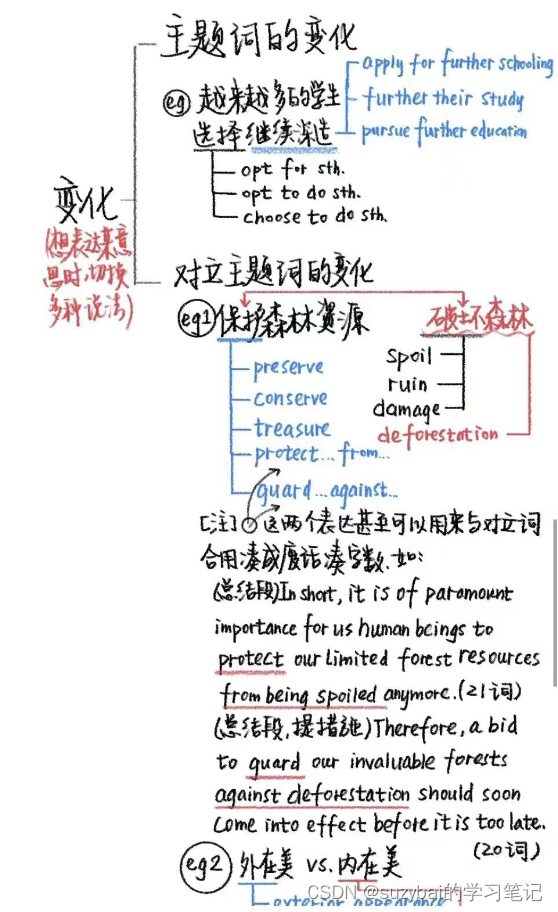 主题词的变化
eg 越来越多的学生
选择继续深造
apply for further schooling
further their study
pursue further education
opt for sth.
opt to do sth.
choose to do sth.
变化
(想表达某意
思时,切换
多种说法)
对立主题词的变化
eg1 保护森林资源
破坏森林
preserve
conserve
treasure
protect...from...
guard...against...
spoil
ruin
damage
deforestation
[注] 这两个表达甚至可以用来与对立词
合用凑成废话凑字数.如:
(总结段)In short, it is of paramount
importance for us human beings to
protect our limited forest resources
from being spoiled anymore.(21词)
(总结段,提措施)Therefore, a bid
to guard our invaluable forests
against deforestation should soon
come into effect before it is too late.
(20词)
eg2 外在美 vs. 内在美
exterior appearance
CSDN @suzybai的学习笔记